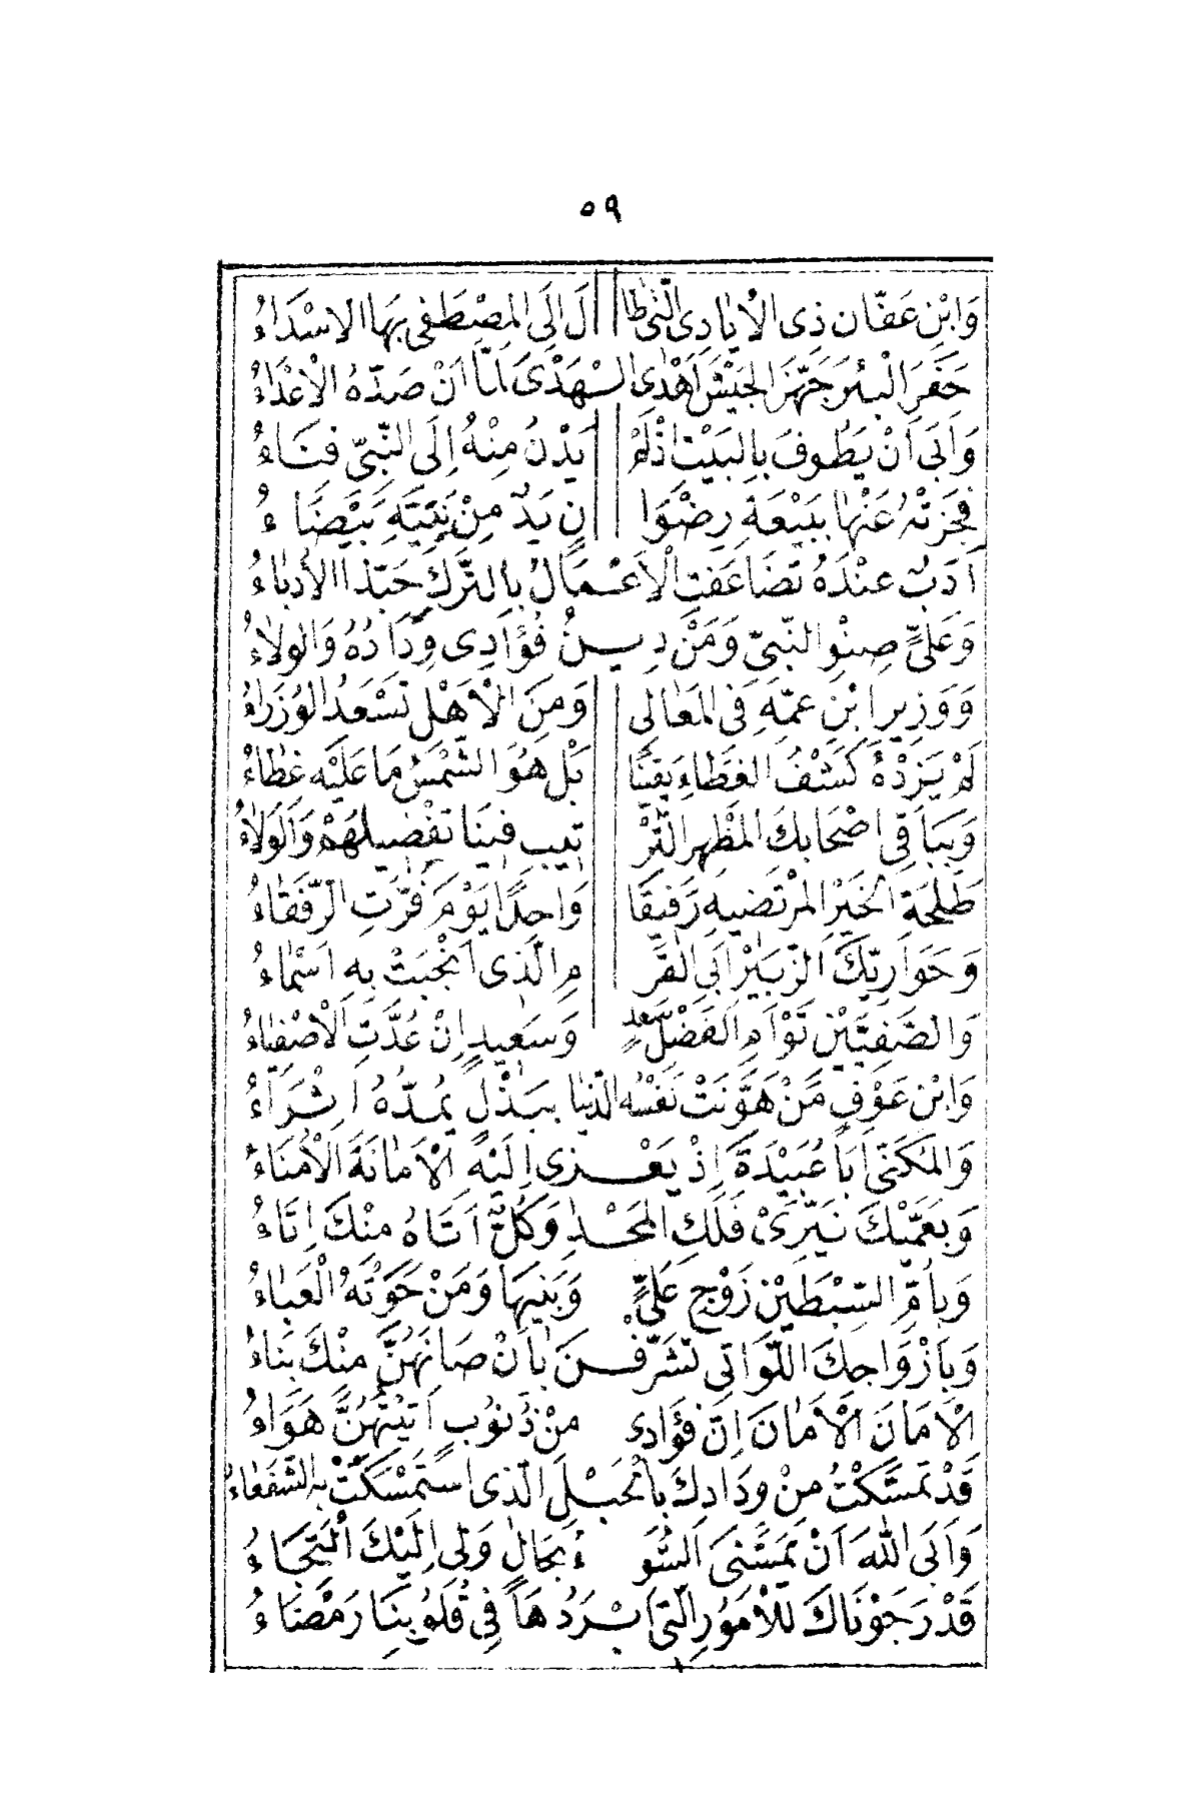 ٥٩
وَابْنِ عَفَّانَ ذِى الْاَيَادِى الَّتِى طَا لَ اِلَى الْمُصْطَفٰى بِهَا الْاِسْدَاءُ
حَفَرَ الْبِئْرَ جَهَّزَ الْجَيْشَ اَهْدَى الْـهَدْىَ لَمَّا اَنْ صَدَّهُ الْاَعْدَاءُ
وَاَبٰى اَنْ يَطُوفَ بِالْبَيْتِ اِذْلَمْ يَدْنُ مِنْهُ اِلَى النَّبِىِّ فِنَاءُ
فَجَزَتْهُ عَنْهَا بِبَيْعَةِ رِضْوَا نِ يَدٌ مِنْ نَبِيِّهِ بَيْضَاءُ
اَدَبٌ عِنْدَهُ تَضَاعَفَتِ الْاَعْـمَالُ بِالتَّرْكِ حَبَّذَا الْاُدَبَاءُ
وَعَلِىٍّ صِنْوِ النَّبِىِّ وَمَنْ دِيـنُ فُؤَادِى وِدَادُهُ وَالْوَلَاءُ
وَوَزِيرِ ابْنِ عَمِّهِ فِى الْمَعَالِى وَمِنَ الْاَهْلِ تَسْعَدُ الْوُزَرَاءُ
لَمْ يَزِدْهُ كَشْفُ الْغِطَاءِ يَقِينًا بَلْ هُوَ الشَّمْسُ مَا عَلَيْهِ غِطَاءُ
وَبِبَاقِى اَصْحَابِكَ الْمُظْهِرِ التَّرْ تِيبِ فِينَا تَفْضِيلَهُمْ وَالْوَلَاءُ
طَلْحَةِ الْخَيْرِ الْمُرْتَضِيهِ رَفِيقًا وَاحِدًا يَوْمَ فَرَّتِ الرُّفَقَاءُ
وَحَوَارِيِّكَ الزُّبَيْرِ اَبِى الْقَرْ مِ الَّذِى اَنْجَبَتْ بِهِ اَسْمَاءُ
وَالصَّفِيَّيْنِ تَوْاَمِ الْفَضْلِ سَعْدٍ وَسَعِيدٍ اِنْ عُدَّتِ الْاَصْفِيَاءُ
وَابْنِ عَوْفٍ مَنْ هَوَّنَتْ نَفْسُهُ الدُّنْيَا بِبَذْلٍ يُمِدُّهُ اِثْرَاءُ
وَالْمُكَنّٰى اَبَا عُبَيْدَةَ اِذْ يَعْـزِى اِلَيْهِ الْاَمَانَةَ الْاُمَنَاءُ
وَبِعَمَّيْكَ نَيِّرَىْ فَلَكِ الْمَجْـدِ وَكُلٌّ اَتَاهُ مِنْكَ اِتَاءُ
وَبِاُمِّ السِّبْطَيْنِ زَوْجِ عَلِىٍّ وَبَنِيهَا وَمَنْ حَوَتْهُ الْعَبَاءُ
وَبِاَزْوَاجِكَ اللَّوَاتِى تَشَرَّفْـنَ بِاَنْ صَانَهُنَّ مِنْكَ بِنَاءُ
اَلْاَمَانَ الْاَمَانَ اِنَّ فُؤَادِى مِنْ ذُنُوبٍ اَتَيْتُهُنَّ هَوَاءُ
قَدْ تَمَسَّكْتُ مِنْ وِدَادِكَ بِالْحَبْلِ الَّذِى اسْتَمْسَكَتْ بِهِ الشُّفَعَاءُ
وَاَبَى اللّٰهُ اَنْ يَمَسَّنِىَ السُّو ءُ بِحَالٍ وَلِى اِلَيْكَ الْتِجَاءُ
قَدْ رَجَوْنَاكَ لِلْاُمُورِ الَّتِى اَبْـرَدُهَا فِى قُلُوبِنَا رَمْضَاءُ